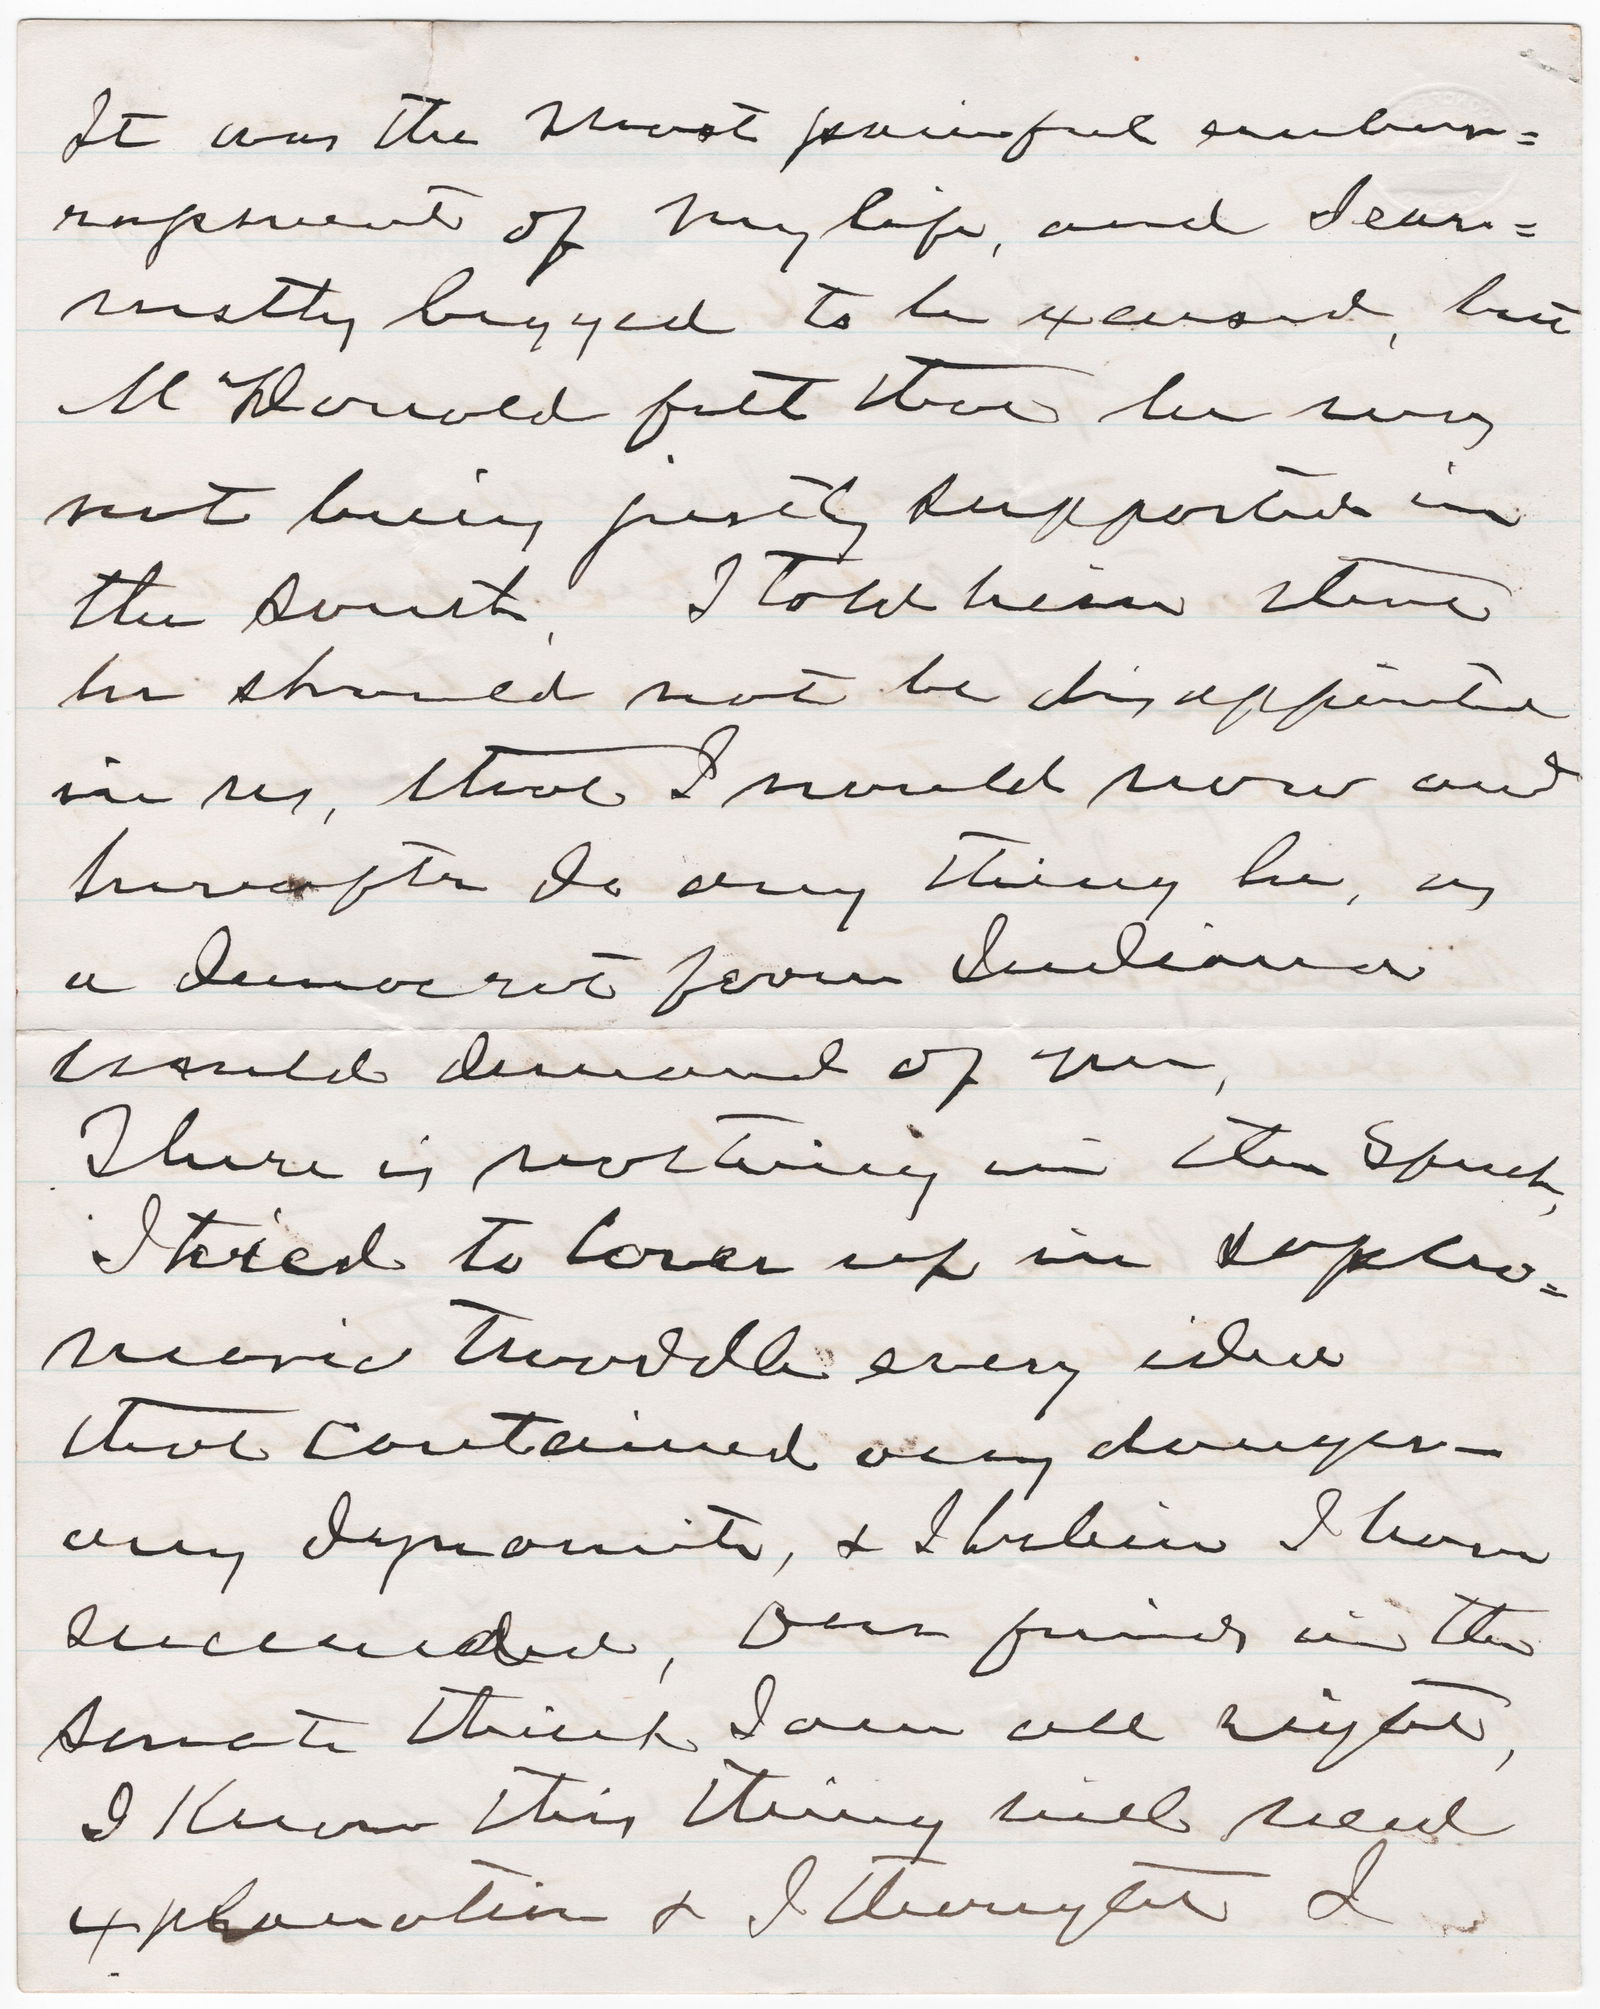 It was the most painful embar=
rassment of my life, and I ear=
nestly begged to be excused, but
McDonald felt that he was
not being justly supported in
the South, I told him that
he should not be disappointed
in us, that I would now and
hereafter do any thing he, as
a democrat from Indiana
would demand of me,
There is nothing in the Speech,
I tried to cover up in sopho=
moric twaddle every idea
that contained any danger-
any dynamite, & I believe I have
succeeded, Our friends in the
senate think I am all right,
I Know this thing will need
explanation & I thought I